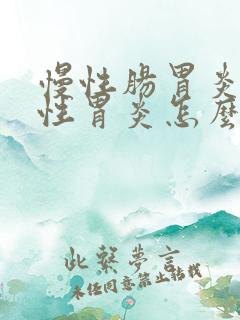 慢性腸胃炎
性胃炎怎麼
此繫夢言
未经同意禁止转载